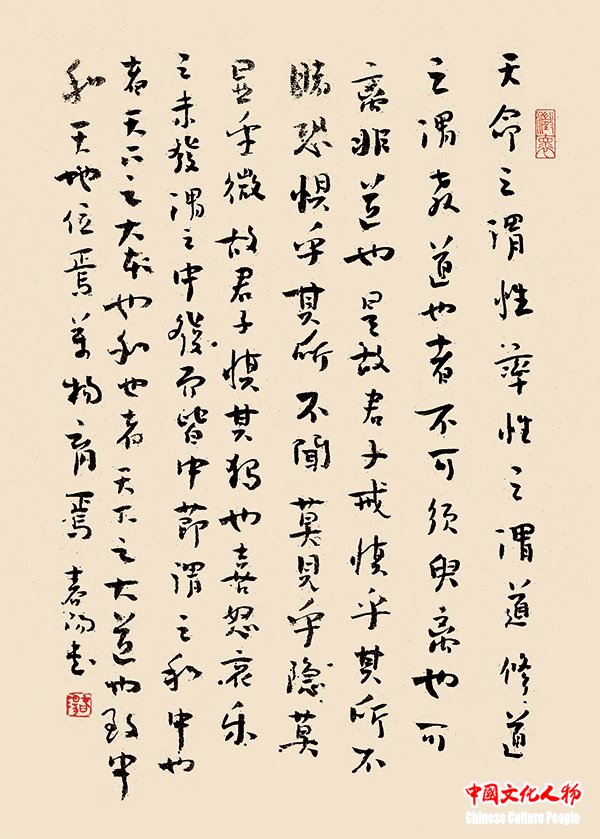 天命之謂性率性之謂道修道
之謂教道也者不可須臾離也可
離非道也是故君子戒慎乎其所不
睹恐惧乎其所不聞莫見乎隱莫
顯乎微故君子慎其獨也喜怒哀樂
之未發謂之中發而皆中節謂之和中也
者天下之大本也和也者天下之大道也致中
和天地位焉萬物育焉
中國文化人物
Chinese Culture People